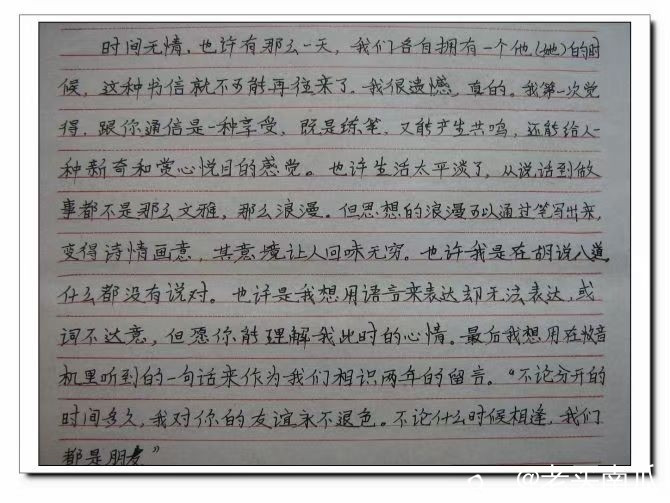 时间无情，也许有那么一天，我们各自拥有一个他（她）的时
候，这种书信就不可能再往来了，我很遗憾，真的。我第一次觉
得，跟你通信是一种享受，既是练笔，又能产生共鸣，还能给人一
种新奇和赏心悦目的感觉。也许生活太平淡了，从说话到做
事都不是那么文雅，那么浪漫。但思想的浪漫可以通过笔写出来，
变得诗情画意，其意境让人回味无穷。也许我是在胡说八道，
什么都没有说对。也许是我想用语言来表达却无法表达，或
词不达意，但愿你能理解我此时的心情。最后我想用在收音
机里听到的一句话来作为我们相识两年的留言。“不论分开的
时间多久，我对你的友谊永不退色。不论什么时候相逢，我们
都是朋友”